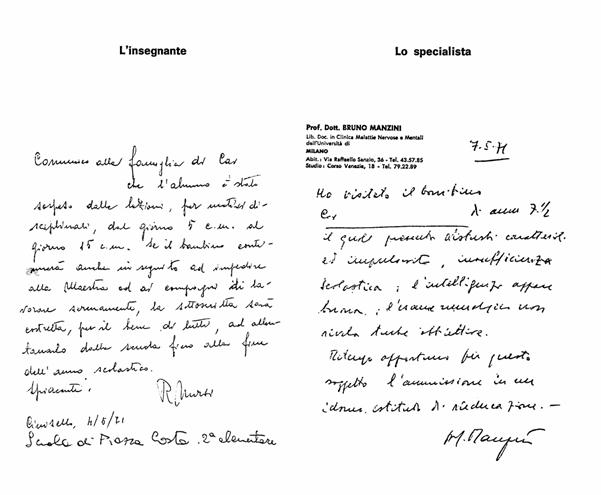 L'insegnante
Comunico alla famiglia di Car
che l'alunno è stato
sospeso dalle lezioni, per motivi di-
sciplinari, dal giorno 5 c.m. al
giorno 15 c.m. Se il bambino conti-
nuerà anche in seguito ad impedire
alla Maestra ed ai compagni di la-
vorare serenamente, la sottoscritta sarà
costretta, per il bene di tutti, ad allon-
tanarlo dalla scuola fino alla fine
dell'anno scolastico.
Spiacente.
Cinisello, 4/5/71
Scuola di Piazza Costa 2ª elementare
Lo specialista
Prof. Dott. BRUNO MANZINI
Lib. Doc. in Clinica Malattie Nervose e Mentali
dell'Università di
MILANO
Abit.: Via Raffaello Sanzio, 36 - Tel. 43.57.85
Studio: Corso Venezia, 18 - Tel. 79.22.89
7.5.71
Ho visitato il bambino
Car di anni 7 1/2
il quale presenta disturbi caratteriali
ed impulsività, insufficienza
scolastica; l'intelligenza appare
buona; l'esame neurologico non
rivela turbe obiettive.
Ritengo opportuno per questo
soggetto l'ammissione in un
idoneo istituto di rieducazione. -
B. Manzini